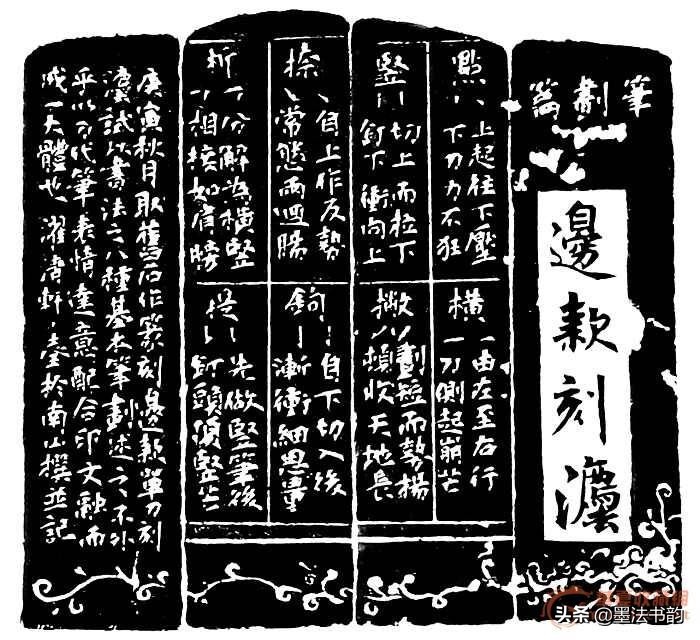 筆劃篇
邊款刻灋
點
丶上起往下壓
丶下刀力不狂
橫
一由左至右行
一刀側起崩芒
豎
丨切上而拉下
丨釘下衝向上
撇
丿劃短而勢揚
丿傾收天地長
捺
自上作反勢
常態兩迴腸
鉤
自下切入後
漸衝細思量
折
分解為橫豎
相接如肩膀
提
先做豎筆後
釘頭須豎芒
庚寅秋月取舊石作篆刻邊款單刀刻
灋試以書法之八種基本筆劃述之不外
乎以刀代筆表情達意配合印文融而
成一大體也 濯清軒奎於南山撰並記
头条 @墨法书韵